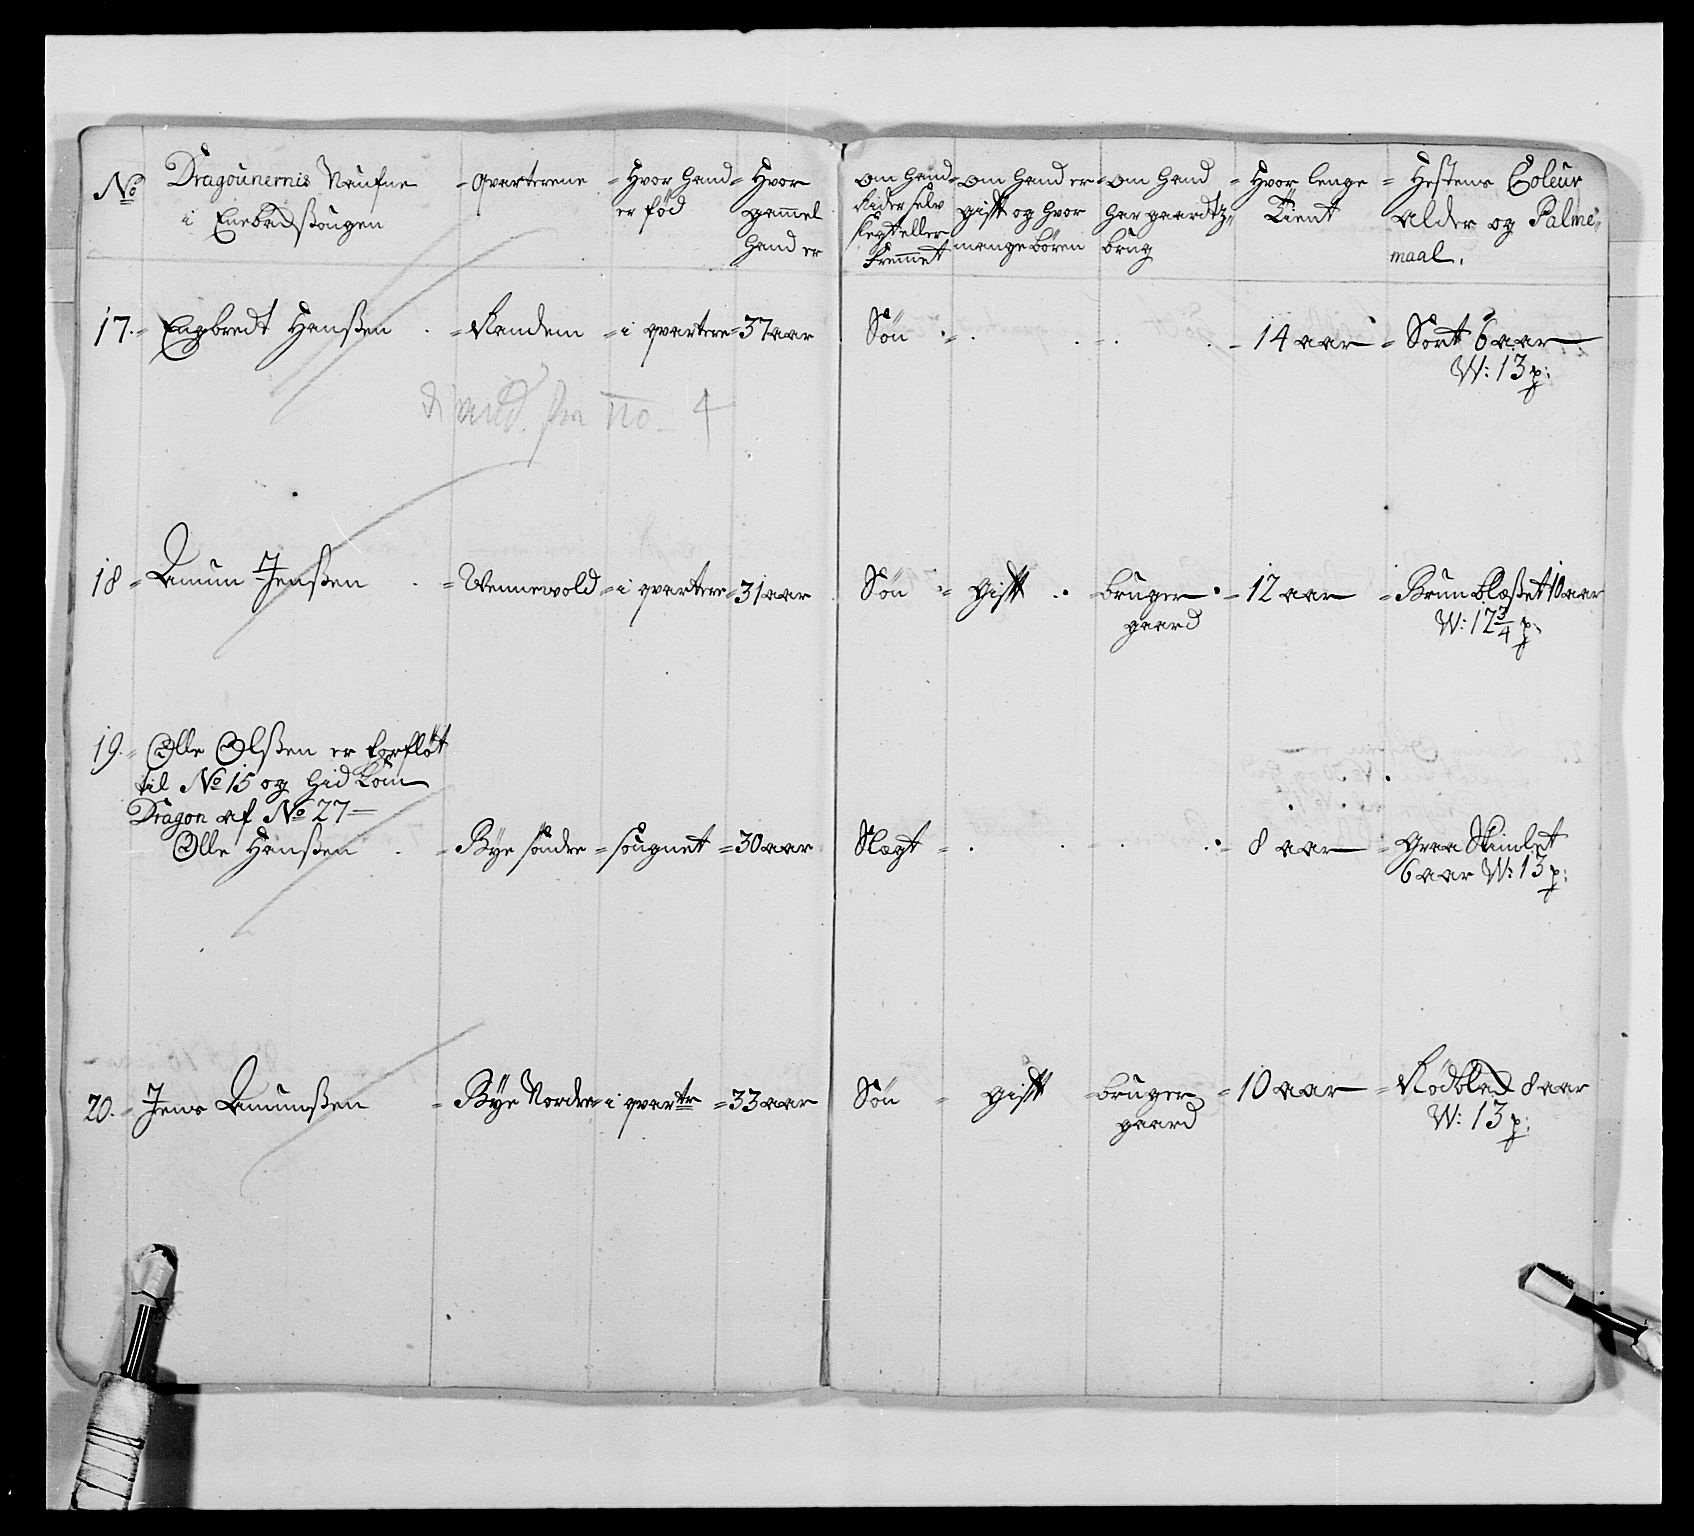 No Dragounernis Naufne i Enebachsougen = qvarterene = Hvor hand er föd = Hvor gammel hand er om hand Rider selv slegt eller fremmet = om hand er gift og hvor mange bören = om hand har gaardtz brug = Hvor lenge tient = Hestens Coleur alder og Palme maal.
17. = Engbredt Hanßen = Randem = i qvartere = 37 aar Sön = 14 aar = Sort 6 aar
W: 13 p:
fra no. 4
18 = Amun Jenßen = Wennevold = i qvartere = 31 aar Sön = gift bruger gaard = 12 aar = Brun blæßet 10 aar
W: 12 3/4 p:
19. = Olle Olßen er forfløt
til No 15 og hid kom
Dragon af No 27 =
Olle Hanßen = Bye söndre = sougnet = 30 aar Slegt = 8 aar = graa Skimlet
6 aar W: 13 p:
20. = Jens Amunßen = Bye Nordre = i qvartr = 33 aar Sön = gift = bruger gaard = 10 aar = Rödblad 8 aar
W: 13 p: